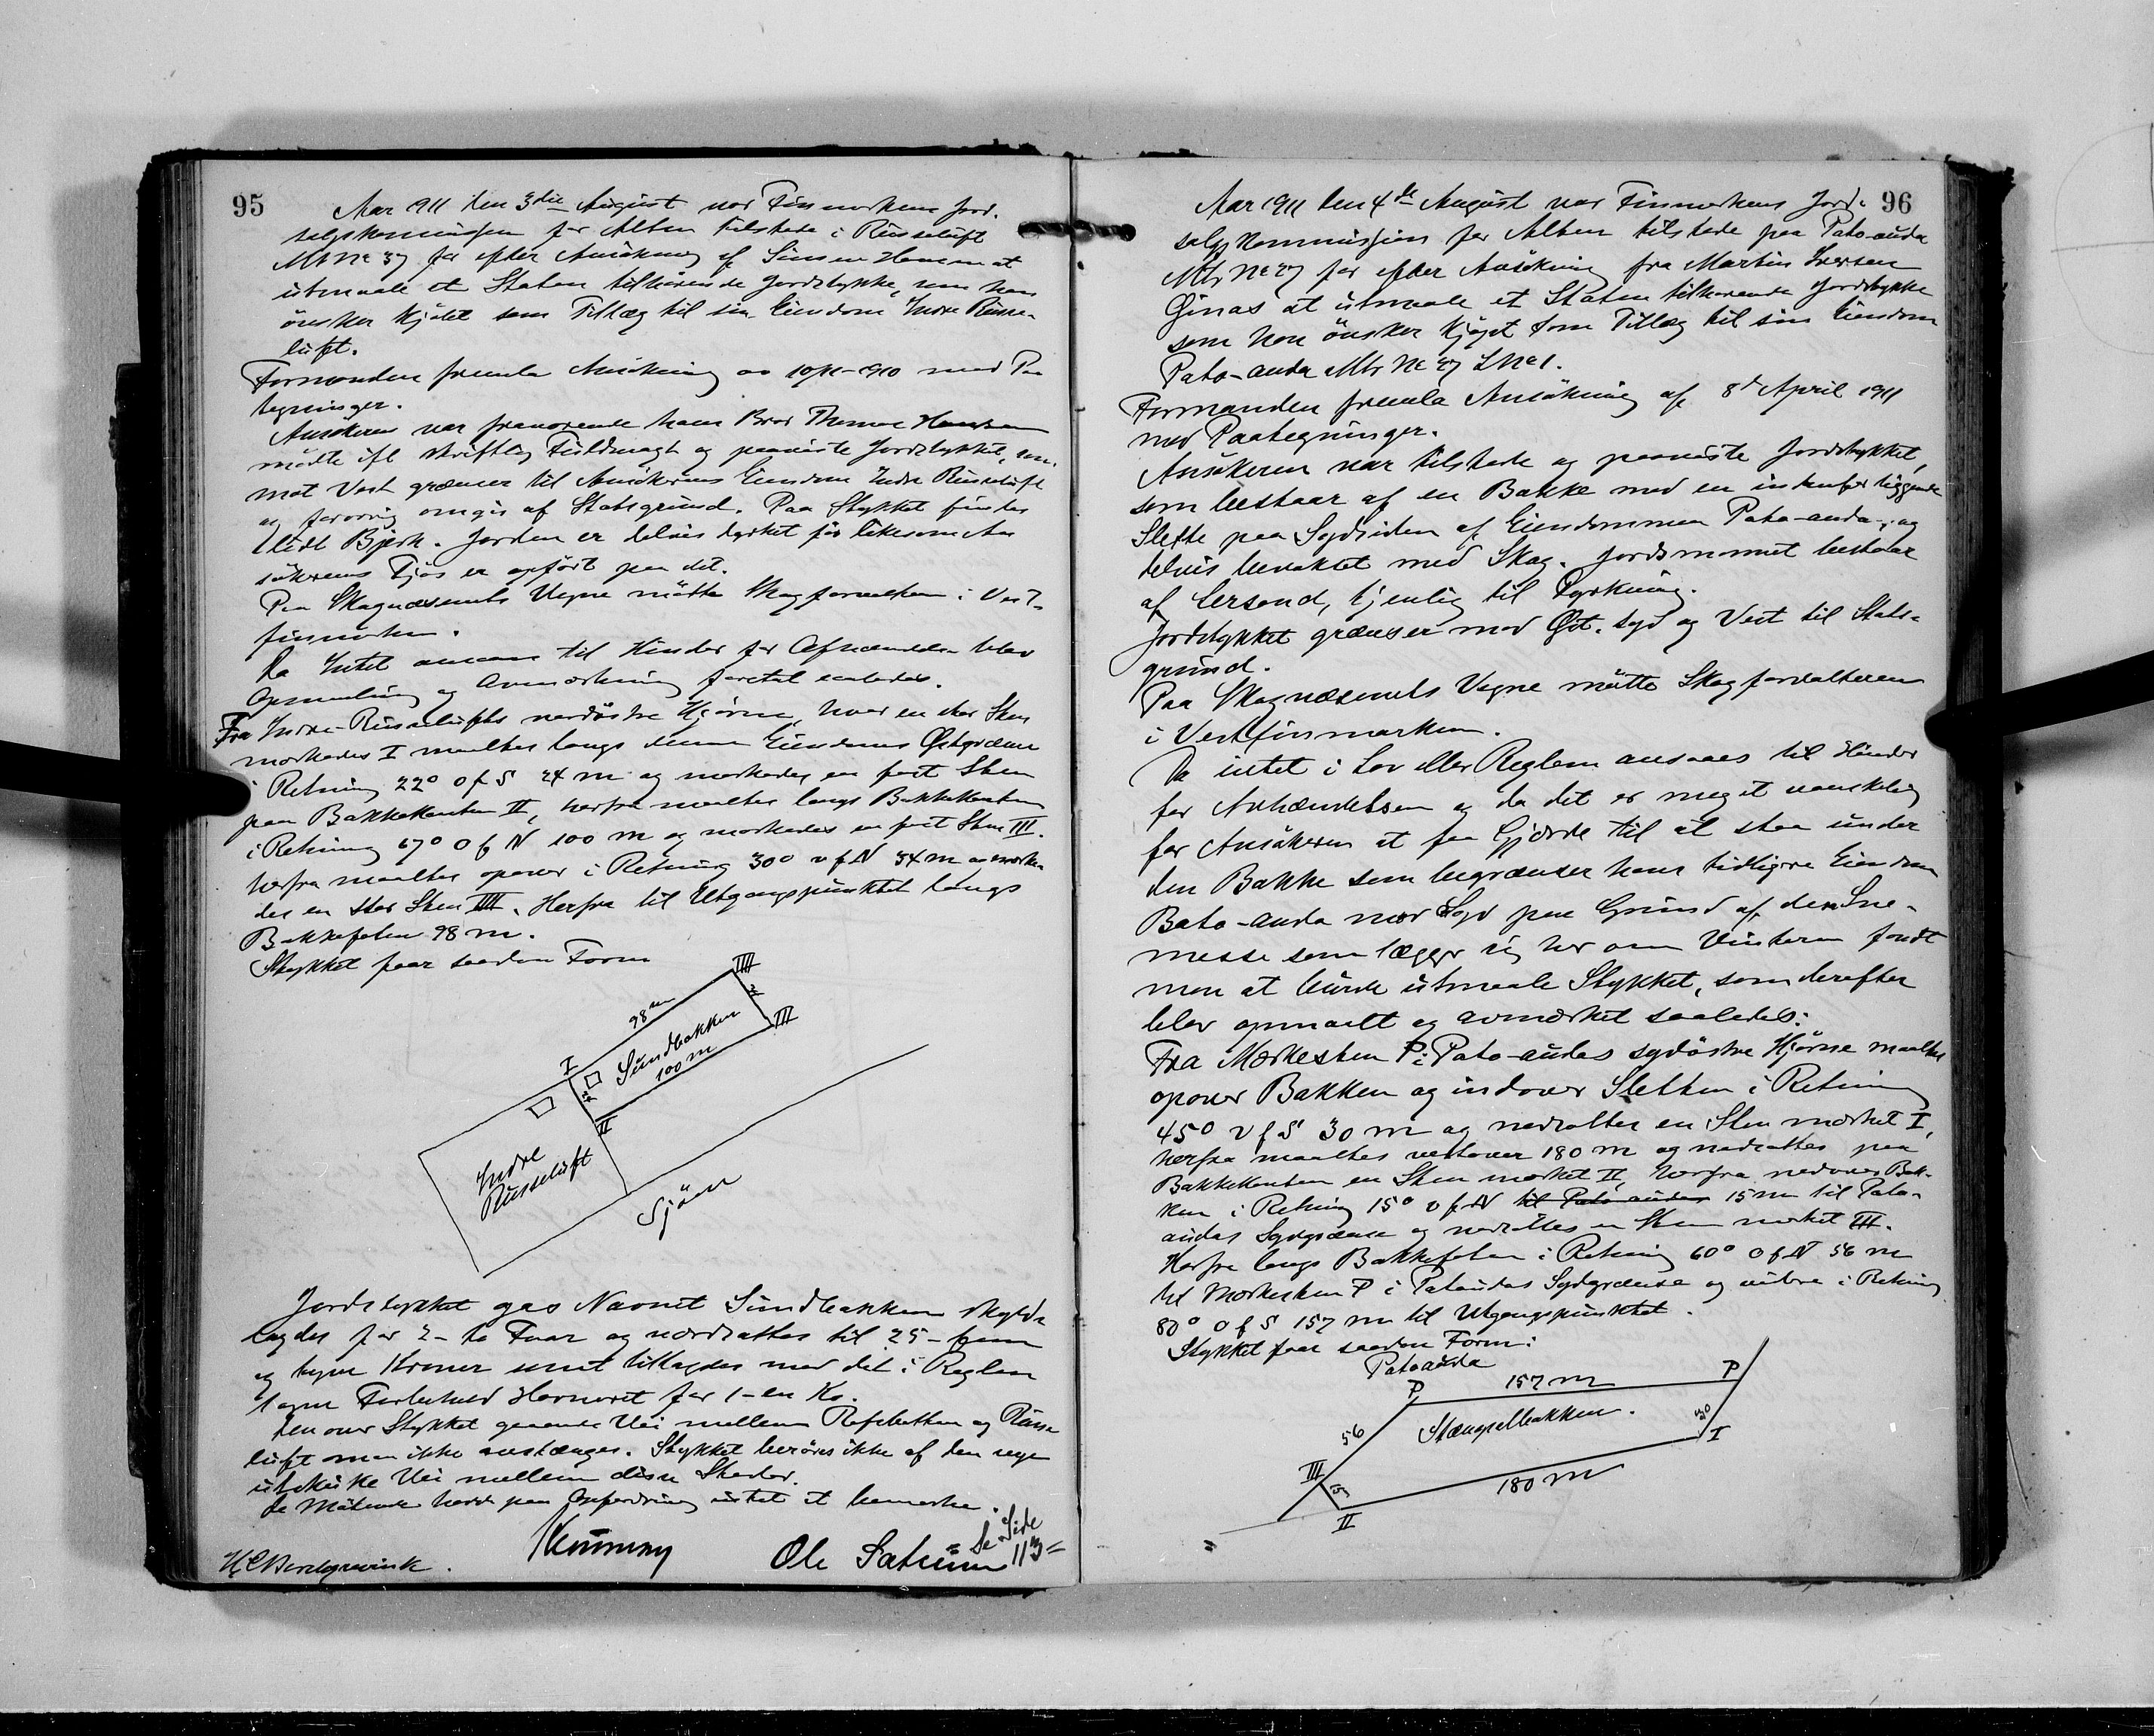 95
Aar 1911 den 3die August var Finmarkens Jord-
salgskommission for Alten tilstede i Russeluft
MNr 37 for efter Ansökning af Simon Hansen at
utmaale et Staten tilhörende Jordstykke, som han
önsker kjöbt som Tillæg til sin Eiendom Indre Russe-
luft.
Formanden fremla Ansökning av 1910 med Paa
tegninger.
Ansökeren var fraværende hans Bror Thomas Hansen
mötte ifl skriftlig Fuldmagt og paaviste Jordstykket, som
mot Vest grænser til Ansökerens Eiendom Indre Russeluft
og forövrig omgis af Statsgrund. Paa Stykket findes
lidt Björk. Jorden er delvis dyrket för likesom An
sökerens Fjös er opfört paa det.
Paa Skogvæsenets Vegne mötte Skogforvalteren i Vest-
finmarken.
Da Intet ansaaes til Hinder for Afhændelsen blev
Opmaaling og Avmerkning foretat saaledes.
Fra Indre-Russelufts nordöstre Hjörne, hvor en stor Sten
merkedes I maaltes langs denne Eiendoms Östgrænse
i Retning 22° O f S 24 m og merkedes en fast Sten
paa Bakkekanten II, herfra maaltes langs Bakkekanten
i Retning 67° O f N 100 m og merkedes en fast Sten III.
herfra maaltes opover i Retning 30° v f N 34 m og merke
des en stor Sten IIII. Herfra til Utgangspunktet langs
Bakkefoten 98 m.
Stykket faar saadan Form
IIII
98 m
Sundbakken
III
100 m
I
24
II
Indre
Russeluft
Sjöen
Jordstykket gas Navnet Sundbakken skyld-
lagdes for 2 - to Faar og værdsattes til 25 - fem
og tyve Kroner samt tillagdes med det i Reglem
tagne Forbehold Havneret for 1 - en Ko.
Den over Stykket gaaende Vei mellem Rafsbotten og Russe
luft maa ikke avstænges. Stykket beröres ikke af den nye
utstukne Vei mellem disse Steder.
De Mötende havde paa Opfordring intet at bemerke.
= Se Side
113 =
H C Borchgrevink. Klemmy Ole Sætrum
96
Aar 1911 den 4de August var Finmarkens Jord-
salgskommission for Alten tilstede paa Pato-auda
Mtr Nr 27 for efter Ansökning fra Martin Iversen
Ginas at utmaale et Staten tilhörende Jordstykke
som han önsker kjöpt som Tillæg til sin Eiendom
Pato-auda Mtr Nr 27 L Nr 1.
Formanden fremla Ansökning af 8de April 1911
med Paategninger.
Ansökeren var tilstede og paaviste Jordstykket,
som bestaar af en Bakke med en indenfor liggende
Slette paa Sydsiden af Eiendommen Pato-auda, og
delvis bevokset med Skog. Jordsmonnet bestaar
af Lersand, tjenlig til Dyrkning.
Jordstykket grænser mod Öst, Syd og Vest til Stats-
grund.
Paa Skogvæsenets Vegne mötte Skogforvalteren
i Vestfinmarken.
Da intet i Lov eller Reglem ansaaes til Hinder
for Avhændelsen og da det er meget vanskelig
for Ansökeren at faa Gjærde til at staa under
den Bakke som begrænser hans tidligere Eiendom
Bato-auda mod Syd paa Grund af den Sne-
masse som lægger sig her om Vinteren fandt
man at burde utmaale Stykket, som derefter
blev opmaalt og avmerket saaledes:
Fra Merkesten P i Pato-audas sydöstre Hjörne maaltes
opover Bakken og indover Sletten i Retning
45° v f S 30 m og nedsattes en Sten merket I,
herfra maaltes vestover 180 m og nedsattes paa
Bakkekanten en Sten merket II, herfra nedover Bak-
ken i Retning 15° v f N til Pato-audas 15 m til Pato-
audas Sydgrænse og nedsattes en Sten merket III.
Herfra langs Bakkefoten i Retning 60° O f N 56 m
til Merkesten P i Patoaudas Sydgrænse og videre i Retning
80° O f S 157 m til Utgangspunktet.
Stykket faar saadan Form:
Patoauda
P
157 m
P
56
Stængselbakken.
30
I
III
15
180 m
II